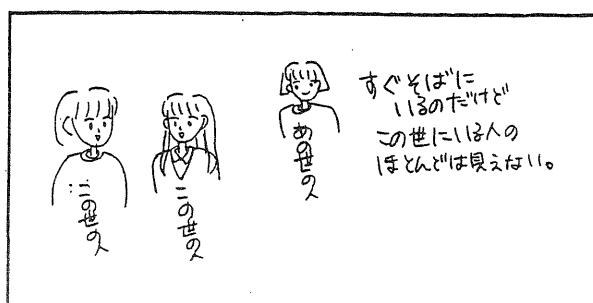 この世の人
この世の人
あの世の人
すぐそばに
いるのだけど
この世にいる人の
ほとんどは見えない。